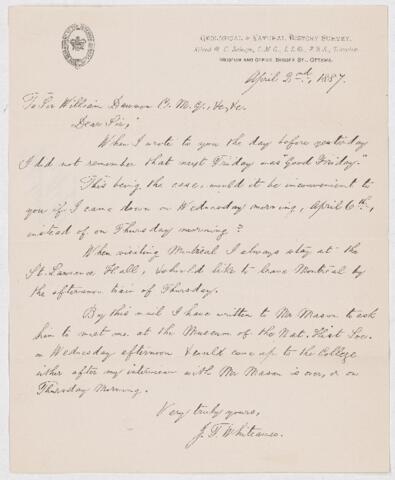 GEOLOGICAL & NATURAL HISTORY SURVEY,
Alfred R. C. Selwyn, C.M.G., L.L.D., F.R.S., Director.
MUSEUM AND OFFICE, SUSSEX ST., OTTAWA.
April 2nd, 1887.
To Sir William Dawson C.M.G., &c, &c.
Dear Sir,
When I wrote to you the day before yesterday
I did not remember that next Friday was "Good Friday."
This being the case, would it be inconvenient to
you if I came down on Wednesday morning, April 6th,
instead of on Thursday morning?
When visiting Montreal I always stay at the
St. Lawrence Hall, & should like to leave Montreal by
the afternoon train of Thursday.
By this mail I have written to Mr Mason to ask
him to meet me at the Museum of the Nat. Hist. Soc.
on Wednesday afternoon & could come up to the College
either after my interview with Mr Mason is over, or on
Thursday Morning.
Very truly yours,
J. F. Whiteaves.